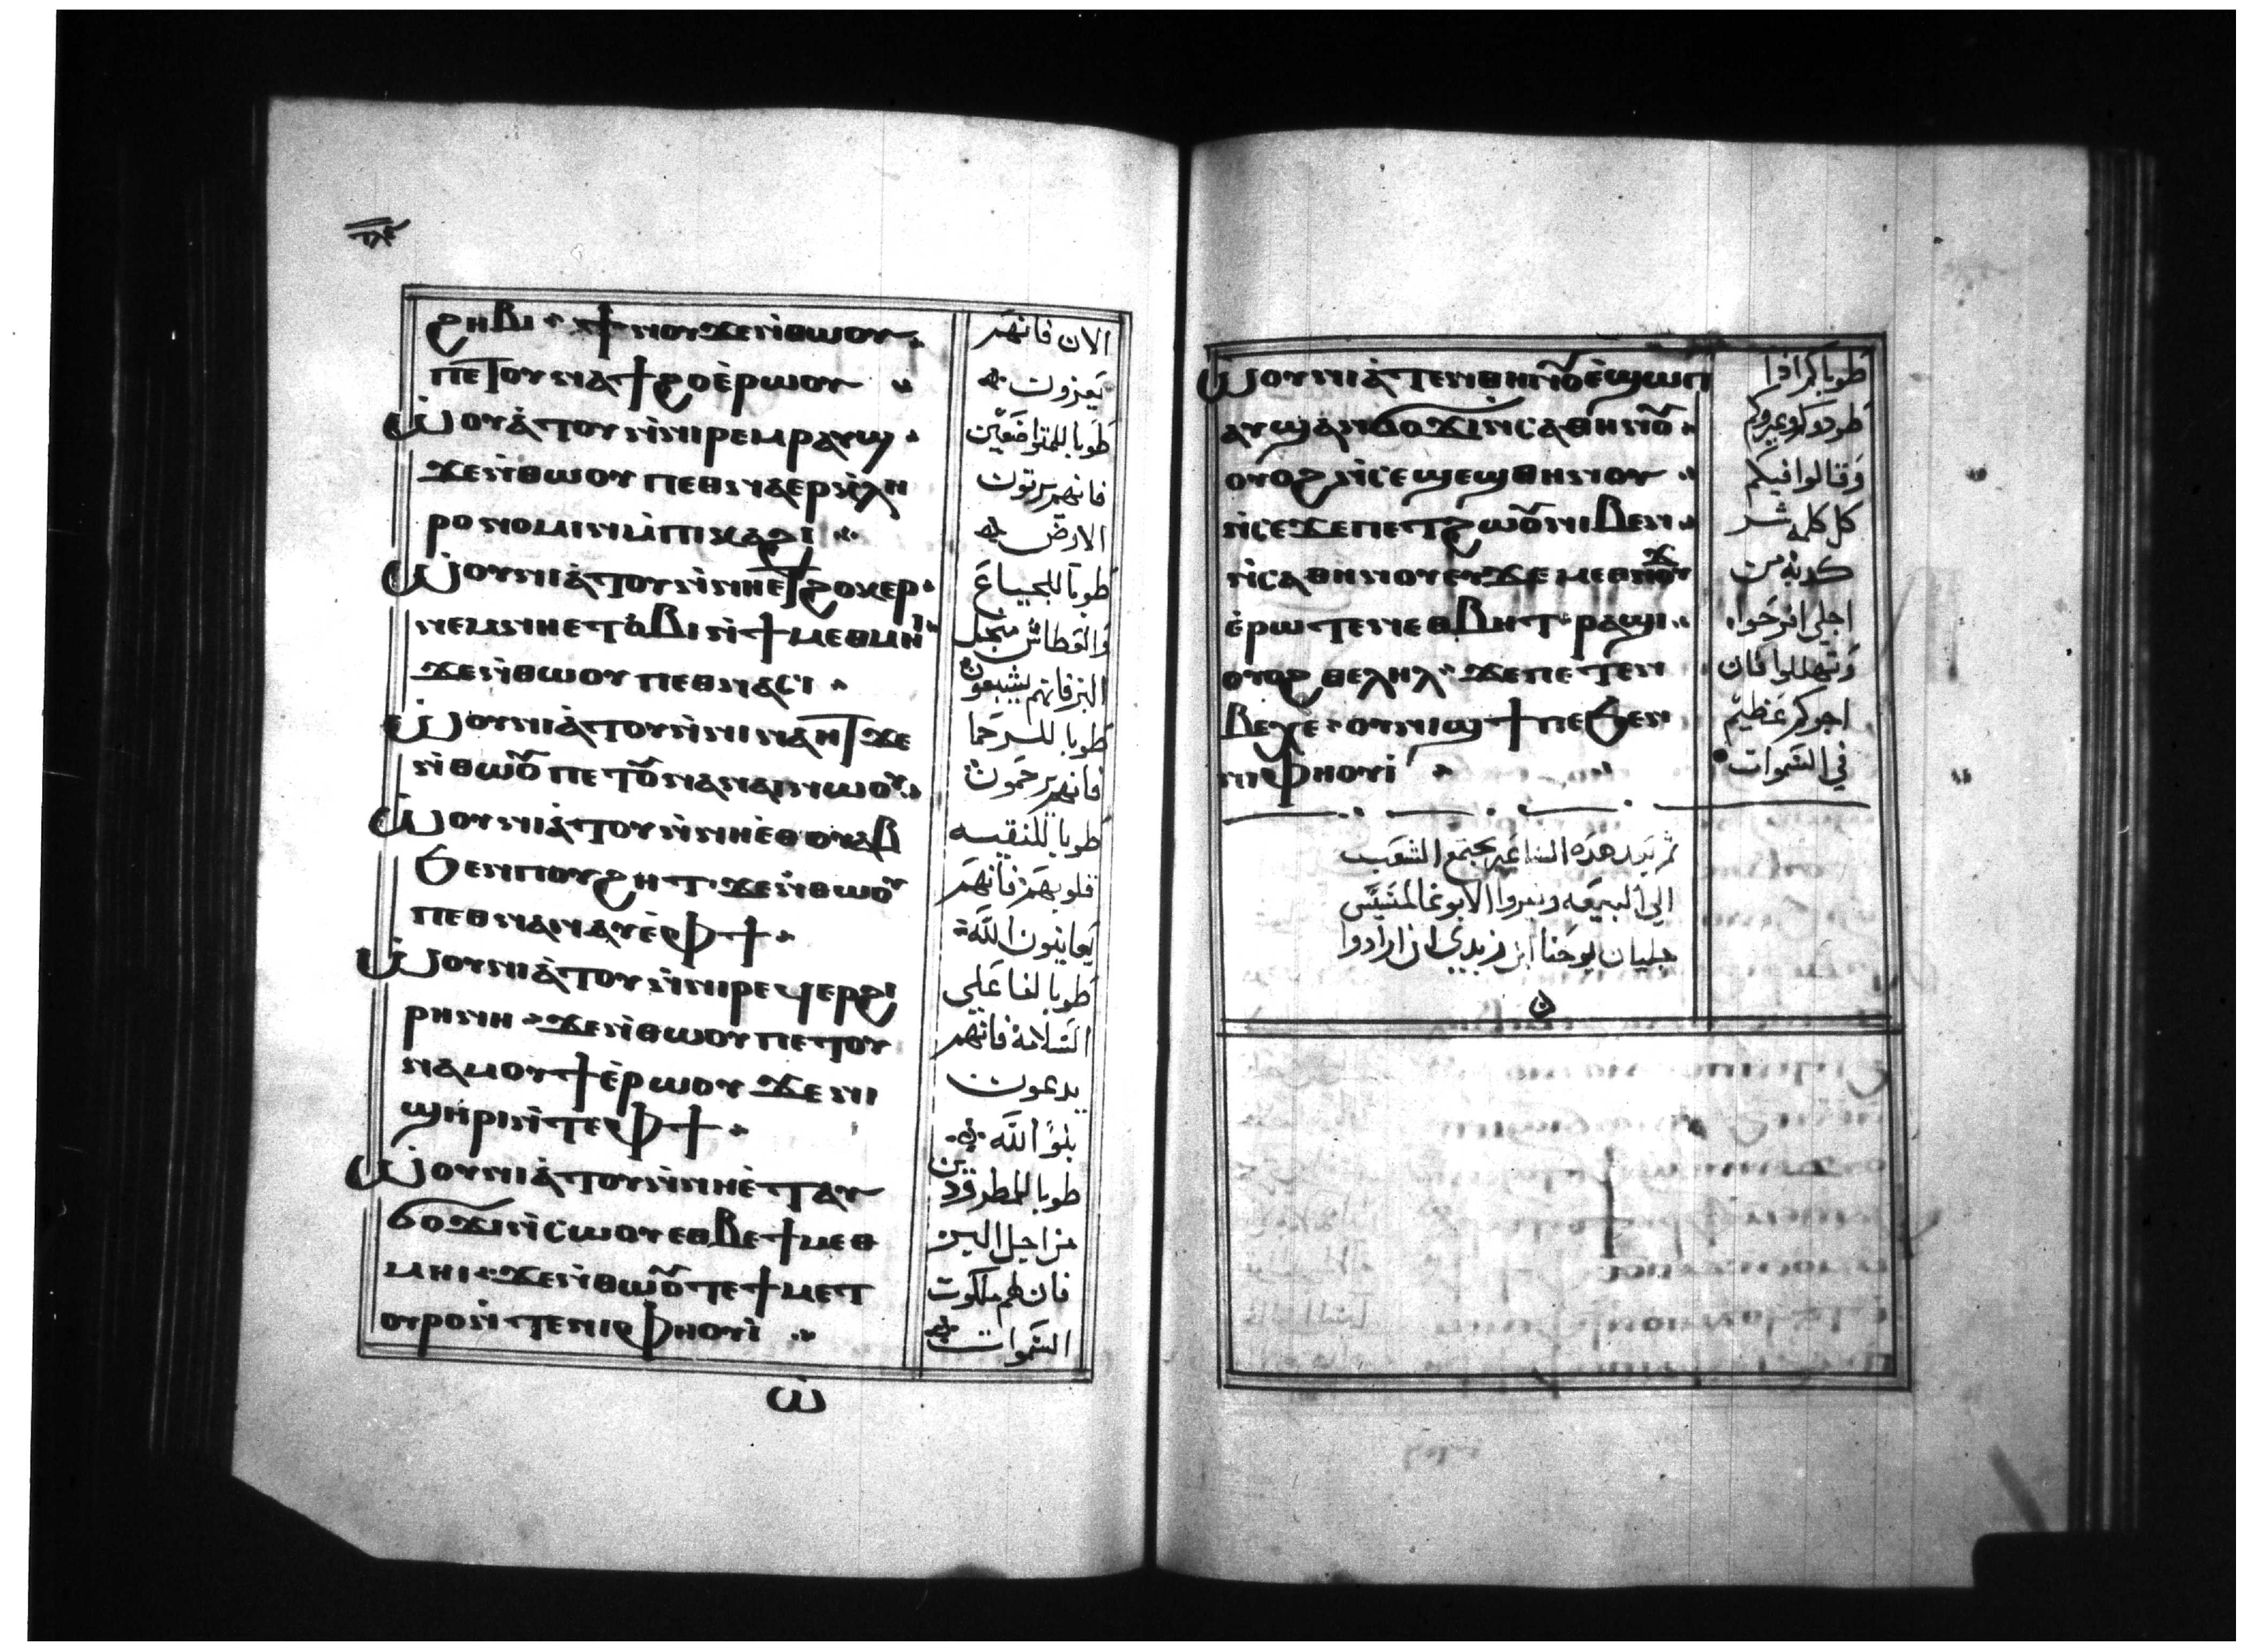 ϩⲏⲃⲓ ϯⲛⲟⲩ ϫⲉ ⲛ̀ⲑⲱⲟⲩ
ⲡⲉⲧⲟⲩⲛⲁϯϩⲟ ⲉ̀ⲣⲱⲟⲩ
ⲱⲟⲩⲛⲓⲁ̀ⲧⲟⲩ ⲛ̀ⲛⲓⲣⲉⲙⲣⲁⲩϣ
ϫⲉ ⲛ̀ⲑⲱⲟⲩ ⲡⲉⲑⲛⲁⲉⲣⲕⲗⲏ
ⲣⲟⲛⲟⲙⲓⲛ ⲙ̀ⲡⲓⲕⲁϩⲓ
ⲱⲟⲩⲛⲓⲁ̀ⲧⲟⲩ ⲛ̀ⲛⲏⲉⲧϩⲟⲕⲉⲣ
ⲛⲉⲙ ⲛⲏⲉⲧⲟ̀ⲃⲓ ⲛ̀ϯⲙⲉⲑⲙⲏⲓ
ϫⲉ ⲛ̀ⲑⲱⲟⲩ ⲡⲉⲑⲛⲁⲥⲓ
ⲱⲟⲩⲛⲓⲁ̀ⲧⲟⲩ ⲛ̀ⲛⲓⲛⲁⲏⲧ ϫⲉ
ⲛ̀ⲑⲱⲟⲩ ⲡⲉⲧⲟⲩⲛⲁⲛⲁⲓ ⲛⲱⲟⲩ
ⲱⲟⲩⲛⲓⲁ̀ⲧⲟⲩ ⲛ̀ⲛⲏⲉ̀ⲑⲟⲩⲁⲃ
ϧⲉⲛ ⲡⲟⲩϩⲏⲧ ϫⲉ ⲛ̀ⲑⲱⲟⲩ
ⲡⲉⲑⲛⲁⲛⲁⲩ ⲉ̀ⲫϯ
ⲱⲟⲩⲛⲓⲁ̀ⲧⲟⲩ ⲛ̀ⲛⲓⲣⲉϥⲉⲣϩⲓ
ⲣⲏⲛⲏ ϫⲉ ⲛ̀ⲑⲱⲟⲩ ⲡⲉⲧⲟⲩ
ⲛⲁⲙⲟⲩϯ ⲉ̀ⲣⲱⲟⲩ ϫⲉ ⲛⲓ
ϣⲏⲣⲓ ⲛ̀ⲧⲉ ⲫϯ
ⲱⲟⲩⲛⲓⲁ̀ⲧⲟⲩ ⲛ̀ⲛⲏⲉ̀ⲧⲁⲩ
ϭⲟϫⲓ ⲛ̀ⲥⲱⲟⲩ ⲉⲑⲃⲉ ϯⲙⲉⲑ
ⲙⲏⲓ ϫⲉ ⲛ̀ⲑⲱⲟⲩ ⲧⲉ ϯⲙⲉⲧ
ⲟⲩⲣⲟ ⲛ̀ⲧⲉ ⲛⲓⲫⲏⲟⲩⲓ̀
ⲱ
الان فانهم
يعزون
طوبا للمتواضعين
فانهم يرثون
الارض
طوبا للجياع
والعطاش من اجل
البر فانهم يشبعون
طوبا للرحما
فانهم يرحمون
طوبا للنقيه
قلوبهم فانهم
يعاينون الله
طوبا لفاعلي
السلامه فانهم
يدعون
بنو الله
طوبا للمطرودين
من اجل البر
فان لهم ملكوت
السموات
ⲱⲟⲩⲛⲓⲁ̀ⲧⲉⲛⲑⲏⲛⲟⲩ ⲉ̀ϣⲱⲡ
ⲁⲩϣⲁⲛϭⲟϫⲓ ⲛ̀ⲥⲁⲑⲏⲛⲟⲩ
ⲟⲩⲟϩ ⲛ̀ⲥⲉϣⲉϣⲑⲏⲛⲟⲩ
ⲛ̀ⲥⲉϫⲉ ⲡⲉⲧϩⲱⲟⲩ ⲛⲓⲃⲉⲛ
ⲛ̀ⲥⲁⲑⲏⲛⲟⲩ ⲉⲩϫⲉⲙⲉⲑⲛⲟⲩϫ
ⲉ̀ⲣⲱⲧⲉⲛ ⲉⲑⲃⲏⲧ ⲣⲁϣⲓ
ⲟⲩⲟϩ ⲑⲉⲗⲏⲗ ϫⲉ ⲡⲉⲧⲉⲛ
ⲃⲉⲭⲉ ⲟⲩⲛⲓϣϯ ⲡⲉ ϧⲉⲛ
ⲛⲓⲫⲏⲟⲩⲓ̀
طوباكم اذا
طردوكم وعيروكم
وقالوا فيكم
كل كلمه شر
كدبه من
اجلي افرحوا
وتهللوا فان
اجركم عظيم
في السموات
الشعب
الي البيعه
يوحنا ابن زبدي ان ارادوا